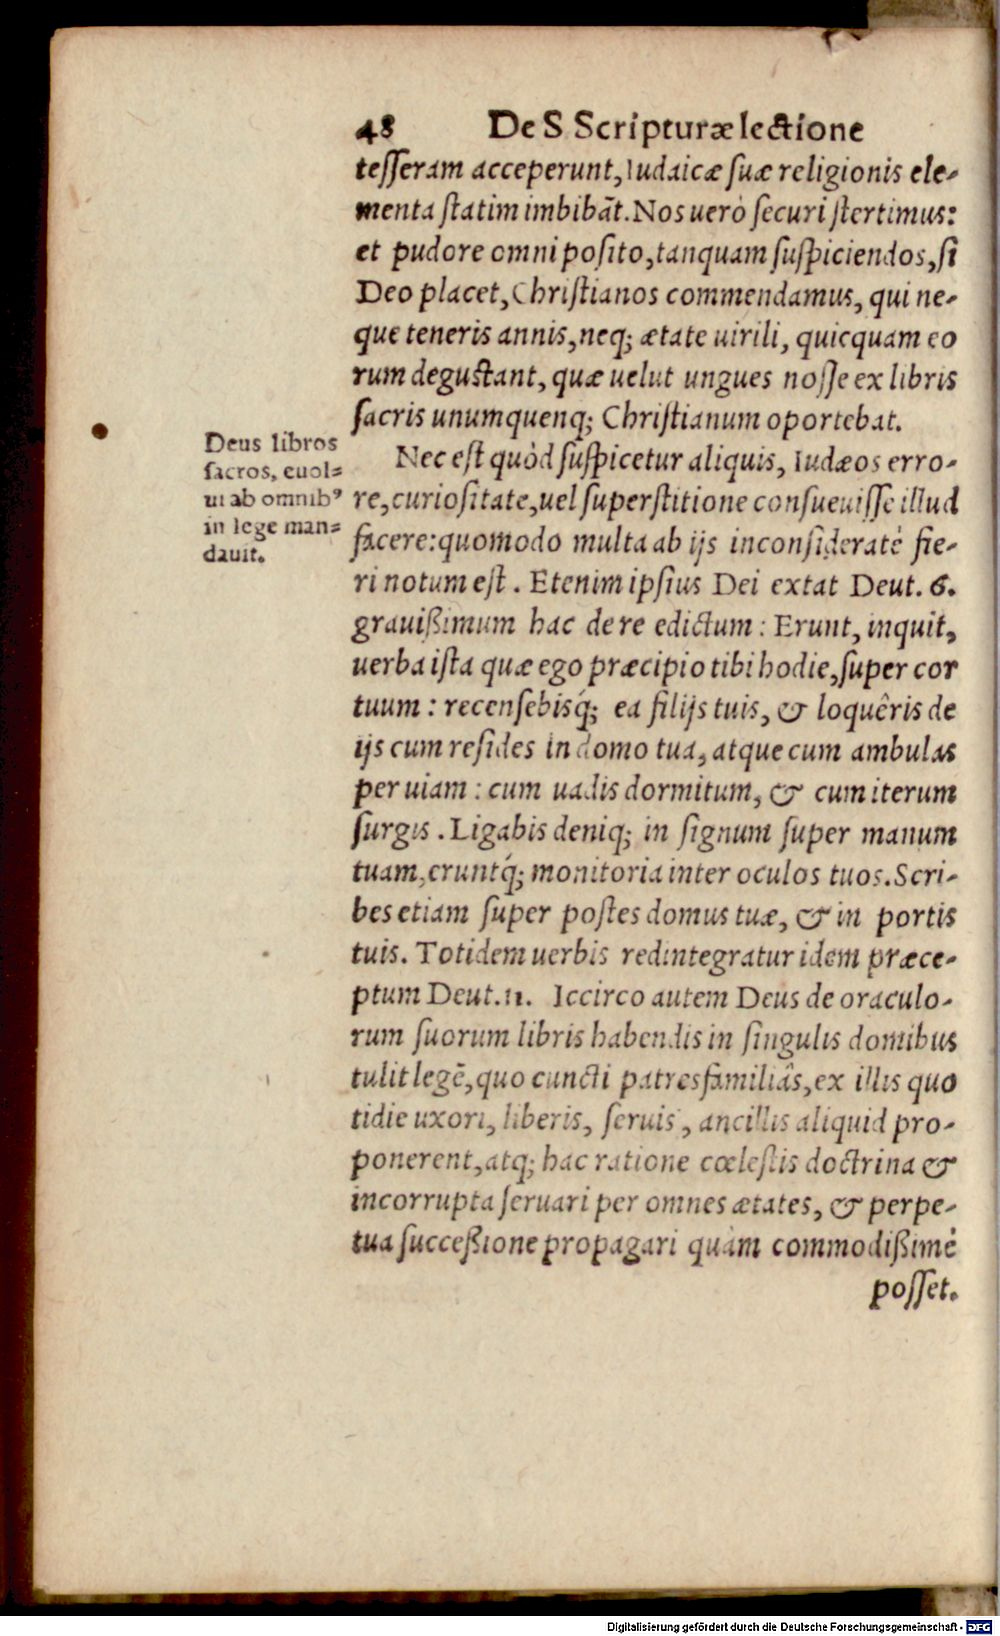 48 De S Scripturæ lectione
tesseram acceperunt, Iudaicæ suæ religionis ele-
menta statim imbibāt. Nos uerò securi stertimus:
et pudore omni posito, tanquam suspiciendos, si
Deo placet, Christianos commendamus, qui ne-
que teneris annis, neq; ætate uirili, quicquam eo
rum degustant, quæ uelut ungues nosse ex libris
sacris unumquenq; Christianum oportebat.
Deus libros
sacros, euol-
ui ab omnib⁹
in lege man-
dauit.
Nec est quòd suspicetur aliquis, Iudæos erro-
re, curiositate, uel superstitione consueuisse illud
facere: quomodo multa ab ijs inconsideratè fie-
ri notum est. Etenim ipsius Dei extat Deut. 6.
grauißimum hac de re edictum: Erunt, inquit,
uerba ista quæ ego præcipio tibi hodie, super cor
tuum: recensebisq́; ea filijs tuis, & loquêris de
ijs cum resides in domo tua, atque cum ambulas
per uiam: cum uadis dormitum, & cum iterum
surgis. Ligabis deniq; in signum super manum
tuam, eruntq́; monitoria inter oculos tuos. Scri-
bes etiam super postes domus tuæ, & in portis
tuis. Totidem uerbis redintegratur idem præce-
ptum Deut. 11. Iccirco autem Deus de oraculo-
rum suorum libris habendis in singulis domibus
tulit legē, quo cuncti patresfamiliâs, ex illis quo
tidie uxori, liberis, seruis, ancillis aliquid pro-
ponerent, atq; hac ratione cœlestis doctrina &
incorrupta seruari per omnes ætates, & perpe-
tua succeßione propagari quàm commodißimè
posset.
Digitalisierung gefördert durch die Deutsche Forschungsgemeinschaft - DFG